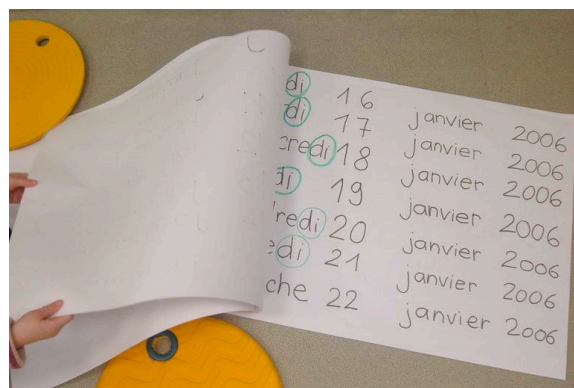 di 16 janvier 2006
di 17 janvier 2006
credi 18 janvier 2006
di 19 janvier 2006
redi 20 janvier 2006
edi 21 janvier 2006
che 22 janvier 2006